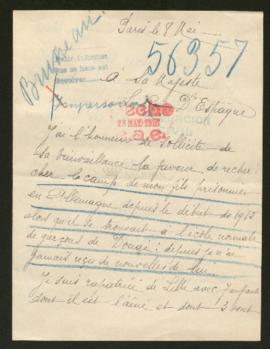 Paris le 8 Mai
56357
A Sa Majesté
D'Espagne
J'ai l'honneur de solliciter de
Sa bienveillance la faveur de recher
cher le camp de mon fils prisonnier
en Allemagne depuis le début de 1915
alors qu'il se trouvait à l'école normale
de garçons de Douai; depuis je n'ai
jamais reçu de nouvelles de lui.
Je suis rapatriée de Lille avec 7 enfants
dont il est l'aîné et dont 3 sont